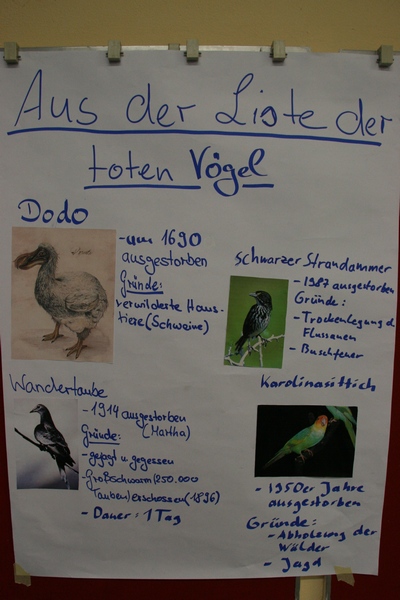 Aus der Liste der
toten Vögel
Dodo
- um 1690
ausgestorben
Gründe:
verwilderte Haus-
tiere (Schweine)
Schwarzer Strandammer
- 1987 ausgestorben
Gründe:
- Trockenlegung d.
Flussauen
- Buschfeuer
Wandertaube
- 1914 ausgestorben
(Martha)
Gründe:
- gejagt u gegessen
- Großschwarm (250.000
Tauben) erschossen (1896)
- Dauer: 1 Tag
Karolinasittich
- 1950er Jahre
ausgestorben
Gründe:
- Abholzung der
Wälder
- Jagd